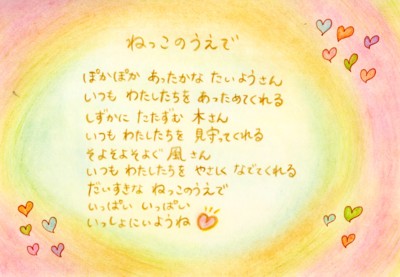 ねっこのうえで
ぽかぽか あったかな たいようさん
いつも わたしたちを あっためてくれる
しずかに たたずむ 木さん
いつも わたしたちを 見守ってくれる
そよそよそよぐ 風さん
いつも わたしたちを やさしく なでてくれる
だいすきな ねっこのうえで
いっぱい いっぱい
いっしょにいようね